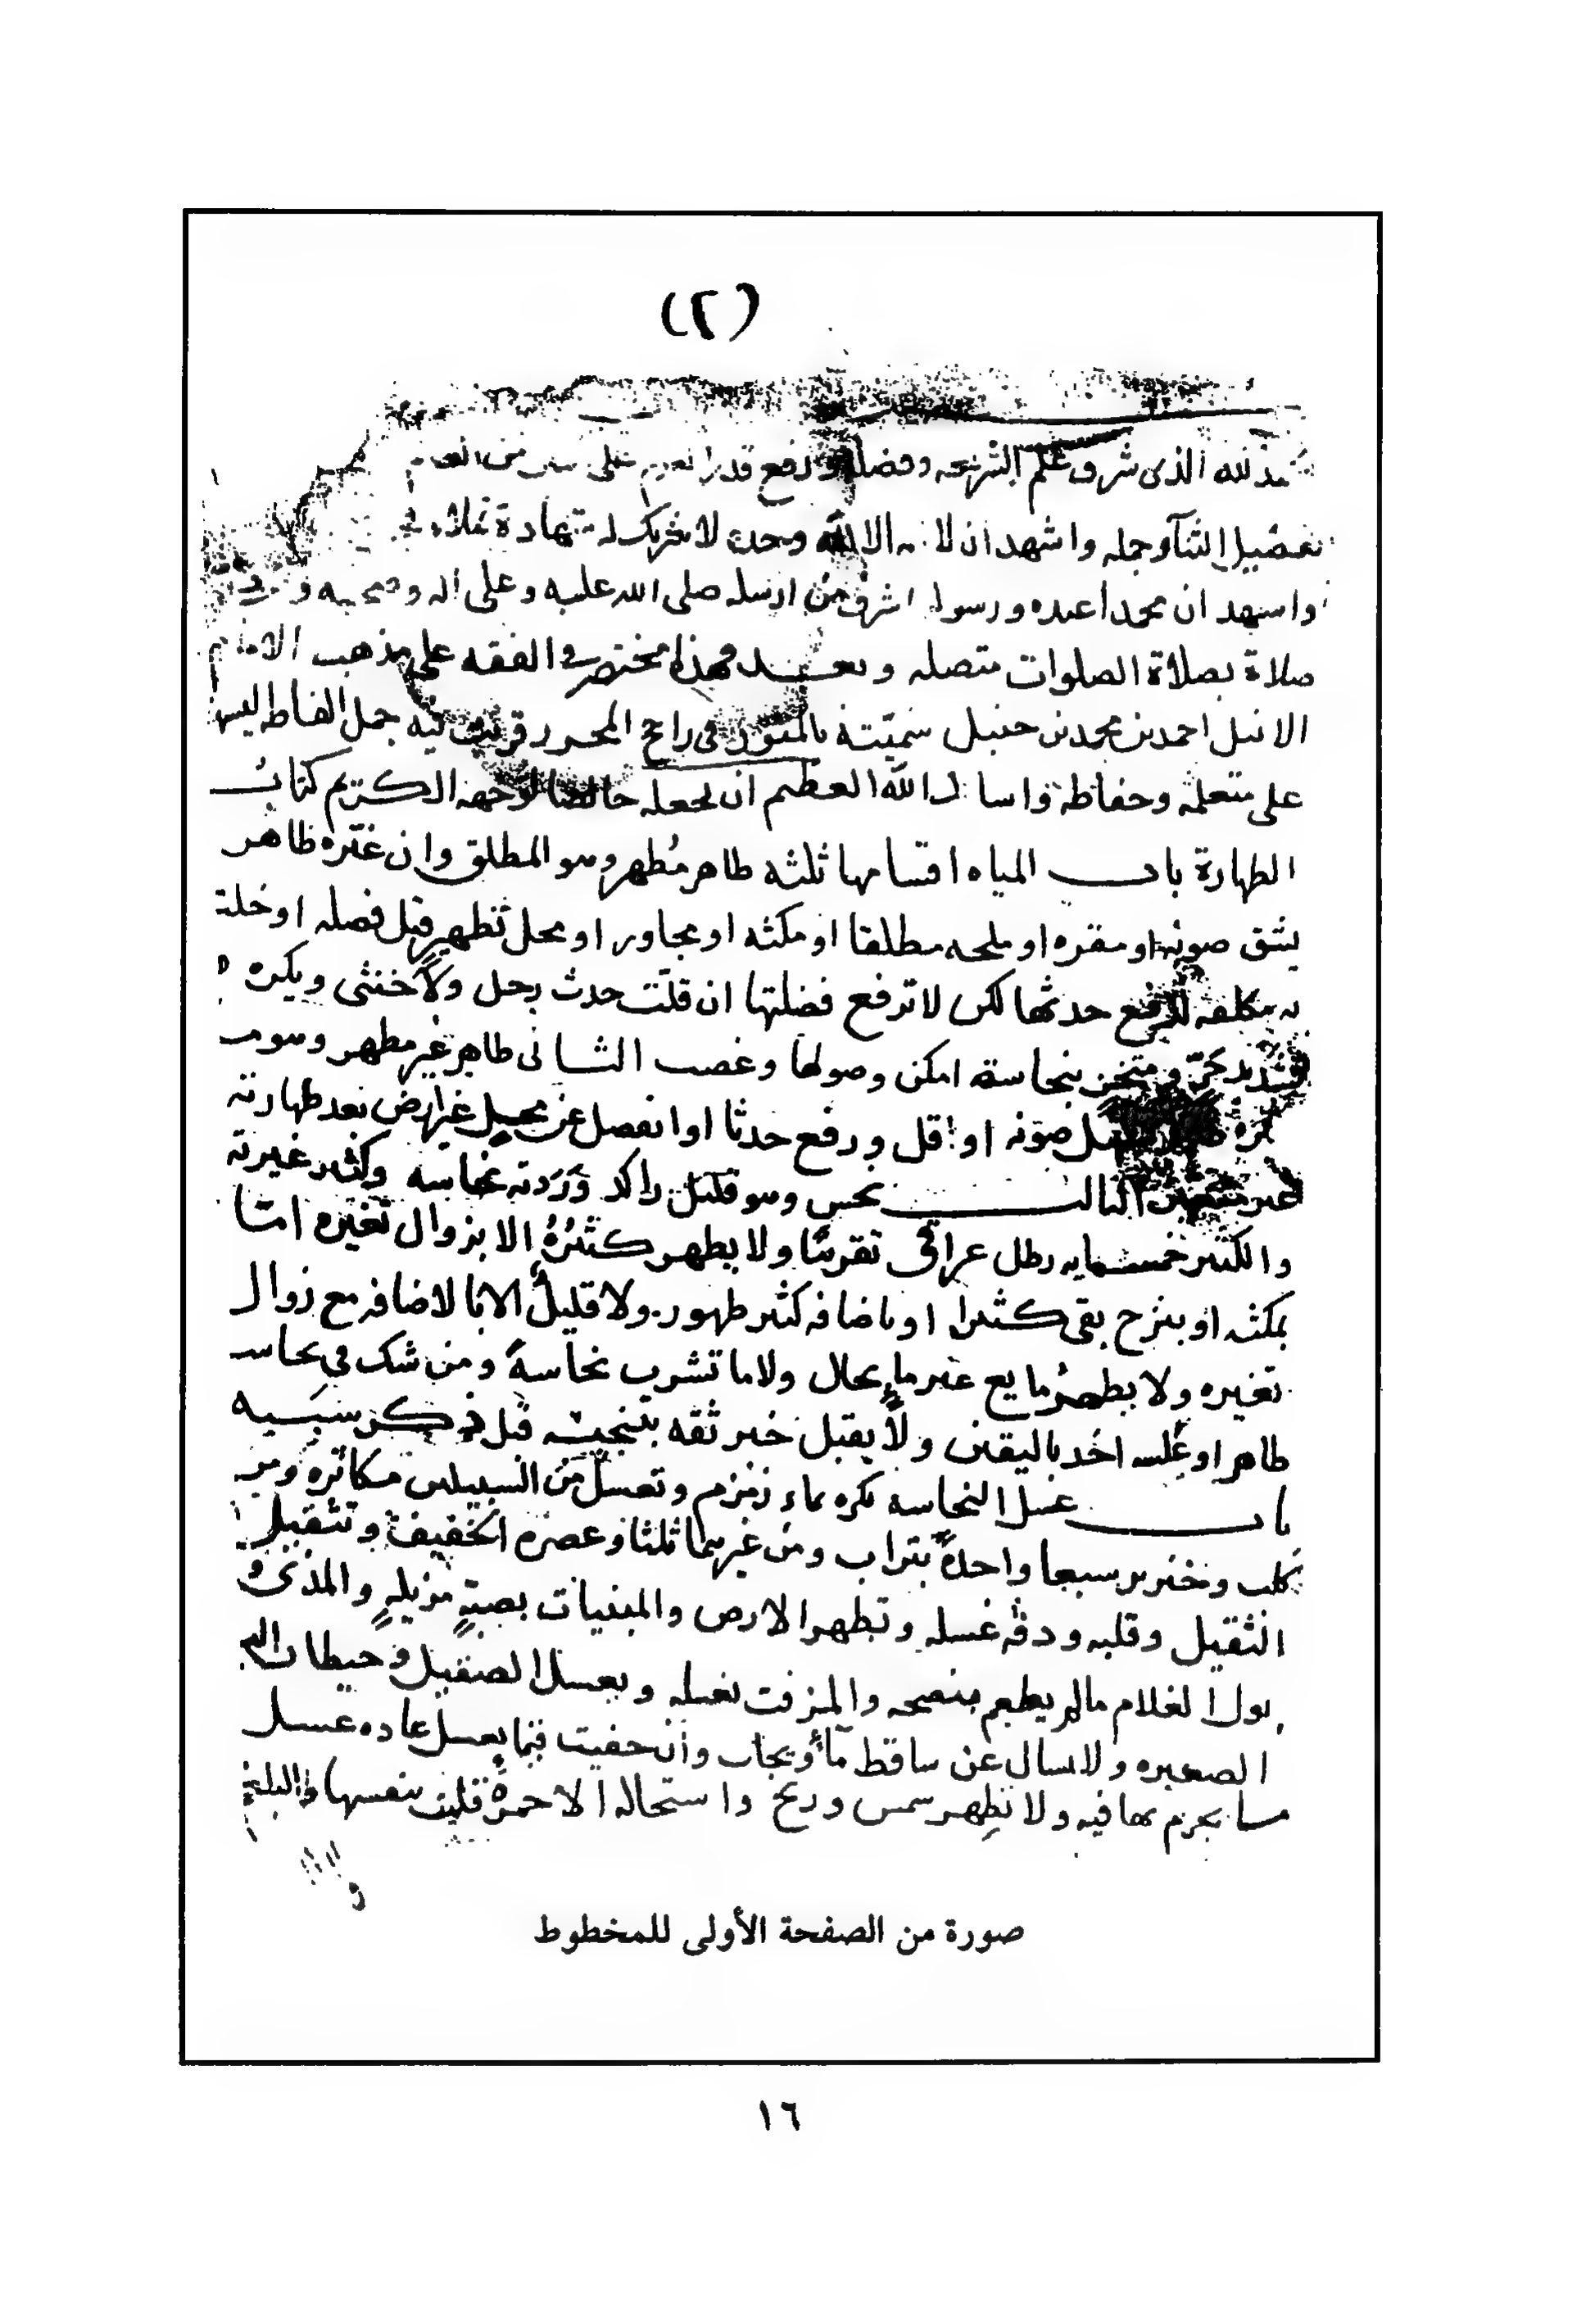 (٢)
لله الذى شرف علم الشريعه وفضله ورفع قدر
تفضيل الثنآ وجمله واشهد ان لا اله الا الله وحده لا شريك له شهادة
واشهد ان محمدا عبده ورسوله اشرف من ارسله صلى الله عليه وعلى اله وصحبه و
صلاة بصلاة الصلوات متصله وبعد فهذا مختصر في الفقه على مذهب الامام
احمد بن محمد بن حنبل سميته بالمنور في راجح المحرر قربت فيه جمل الفاظه ليسهل
على متعلمه وحفاظه واسال الله العظيم ان يجعله خالصا لوجهه الكريم كتاب
الطهارة باب المياه اقسامها ثلثه طاهر مُطهر وهو المطلق وان غيّره طاهر
يشق صونه او مقره او ملحه مطلقا او مكثه او مجاور او محل تطهير قبل فصله او خلت
به مكلفه لرفع حدثها لكن لا ترفع فضلتها ان قلّت حدث رجل ولا خنثى ويكره
شديد حرّ ومتخن بنجاسة امكن وصولها وغصب الثانى طاهر غير مطهر وهو
صونه او قل ورفع حدثا او انفصل عن محل غير ارض بعد طهارته
غير الثالث نجس وهو قليل راكد وَرَدته نجاسه وكثير غيرته
والكثير خمسمايه رطل عراقى تقريبًا ولا يطهر كثيرُهُ الا بزوال تغيره امّا
بمكثه او بنزح بقى كثيرا او باضافه كثير طهور ولا قليلُه الا بالاضافه مع زوال
تغيره ولا يطهرُ مايع غير ماءٍ بحال ولا ما تشرب نجاسةً ومن شك في نجاسه
طاهر او عكسه اخذ باليقين ولا يقبل خبر ثقه بتنجيسه قبل ذكر سببه
باب غسل النجاسه يكره بماء زمزم وتغسل من السبيلين مكاثره ومن
كلب وخنزير سبعا واحدةً بتراب ومن غيرهما ثلثا وعصره الخفيف وتثقيل
الثقيل وقلبه ودقه غسله وتطهر الارض والمبنيات بصبةٍ مزيلهٍ والمذى و
بول الغلام مالم يطعم بنضحه والمزفت بغسله ويغسل الصقيل وحيطان
الصغيره ولا يسال عن ساقط مآء ويجاب وان خفيت فيما يغسل عاده غسل
ما يجزم بها فيه ولا تطهر شمس وريح واستحاله الا خمرةً قلبت بنفسها
صورة من الصفحة الأولى للمخطوط
١٦